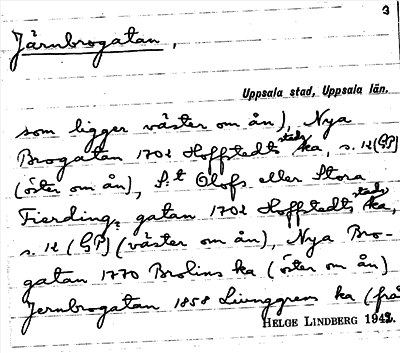 3
Järnbrogatan,
Uppsala stad, Uppsala län.
som ligger väster om ån), Nya
Brogatan 1702 Hoffstedts stads ka, s. 12 (GP)
(öster om ån), S:t Olofs eller Stora
Fierding. gatan 1702 Hoffstedts stads ka,
s. 12 (GP) (väster om ån), Nya Bro-
gatan 1770 Brolins ka (öster om ån)
Jernbrogatan 1858 Ljunggrens ka (från
HELGE LINDBERG 1942.